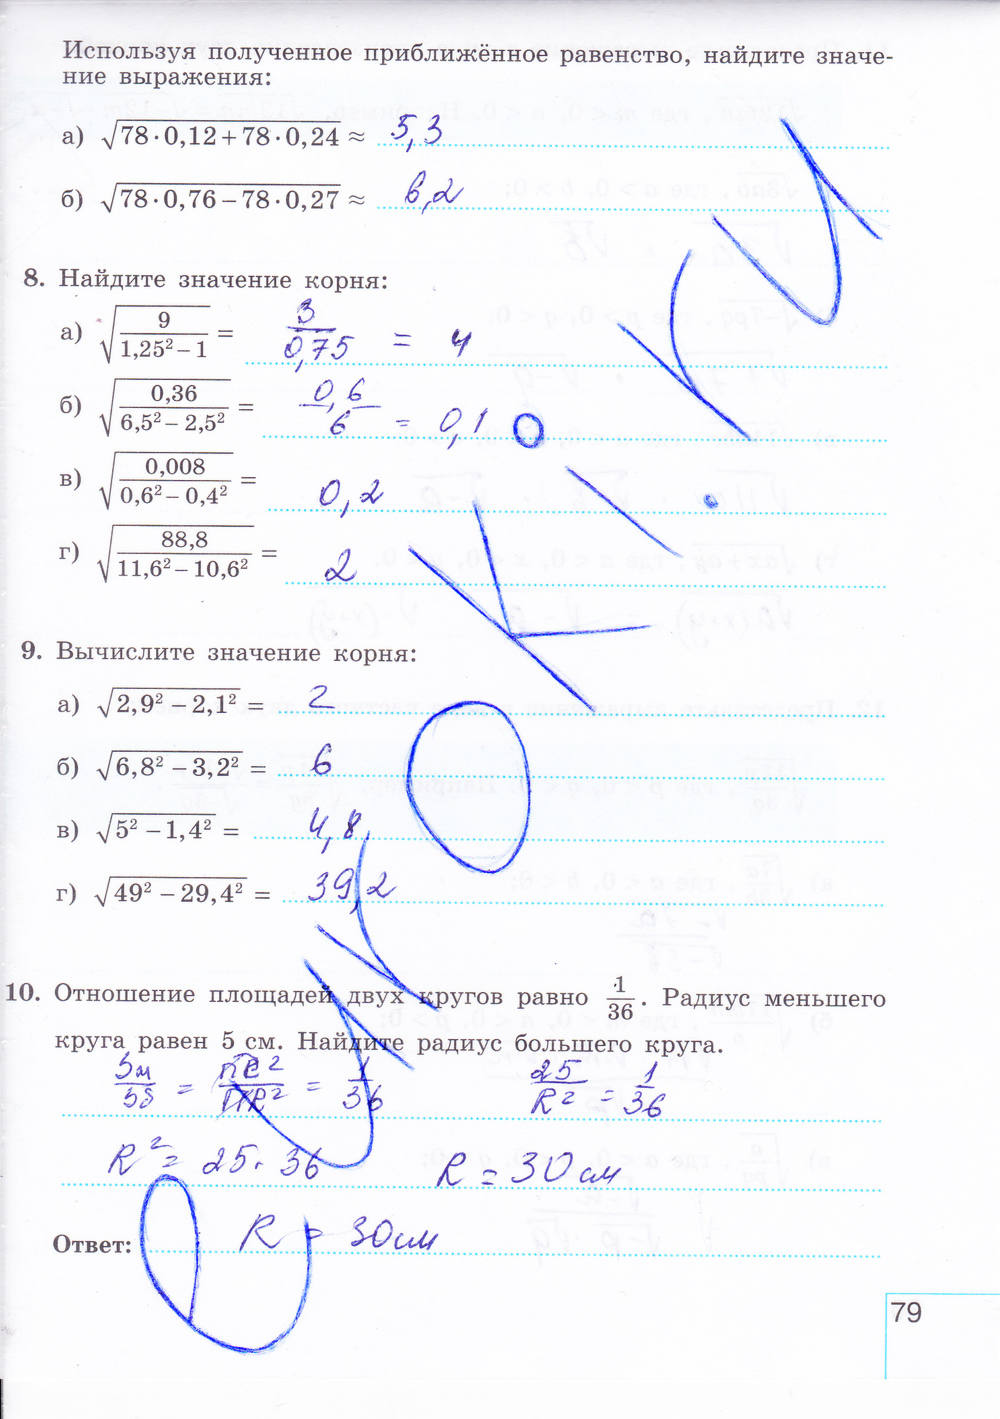 Используя полученное приближённое равенство, найдите значе-
ние выражения:
а) √78·0,12+78·0,24 ≈ 5,3
б) √78·0,76−78·0,27 ≈ 6,2
8. Найдите значение корня:
а) √(9/(1,25²−1)) = 3/0,75 = 4
б) √(0,36/(6,5²−2,5²)) = 0,6/6 = 0,1
в) √(0,008/(0,6²−0,4²)) = 0,2
г) √(88,8/(11,6²−10,6²)) = 2
9. Вычислите значение корня:
а) √2,9²−2,1² = 2
б) √6,8²−3,2² = 6
в) √5²−1,4² = 4,8
г) √49²−29,4² = 39,2
10. Отношение площадей двух кругов равно 1/36. Радиус меньшего
круга равен 5 см. Найдите радиус большего круга.
Sм/Sб = πr²/πR² = 1/36 25/R² = 1/36
R² = 25·36 R = 30 см
Ответ: R = 30 см
79